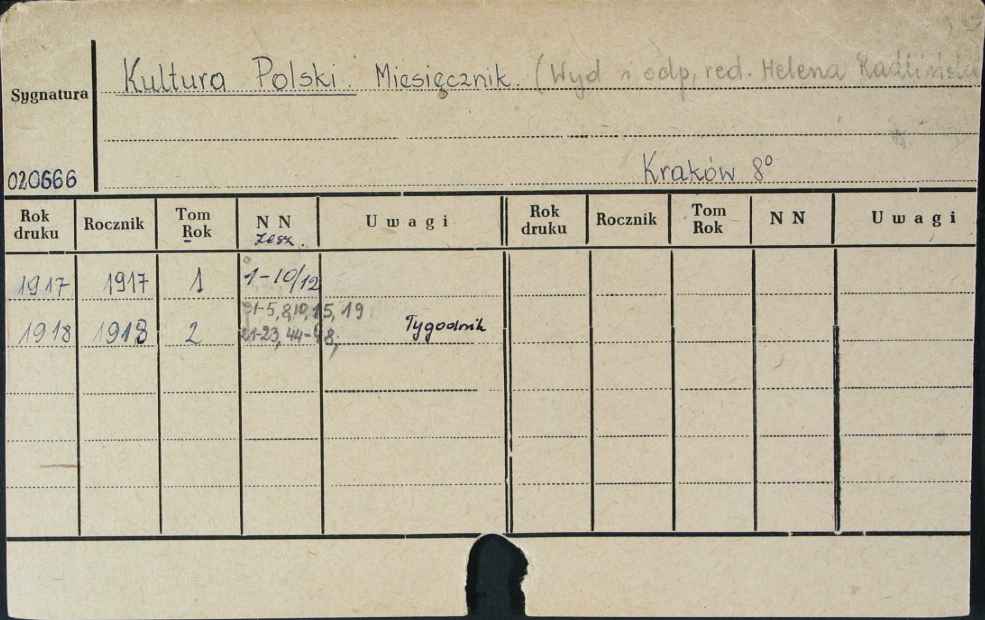 Kultura Polski. Miesięcznik. (Wyd i odp, red. Helena Radlińska
Sygnatura
020666
Kraków 8°
Rok druku Rocznik Tom Rok N N zesz. Uwagi Rok druku Rocznik Tom Rok N N Uwagi
1917 1917 1 1-10/12
1-5, 8, 10, 15, 19
1918 1918 2 21-23, 44-48, Tygodnik